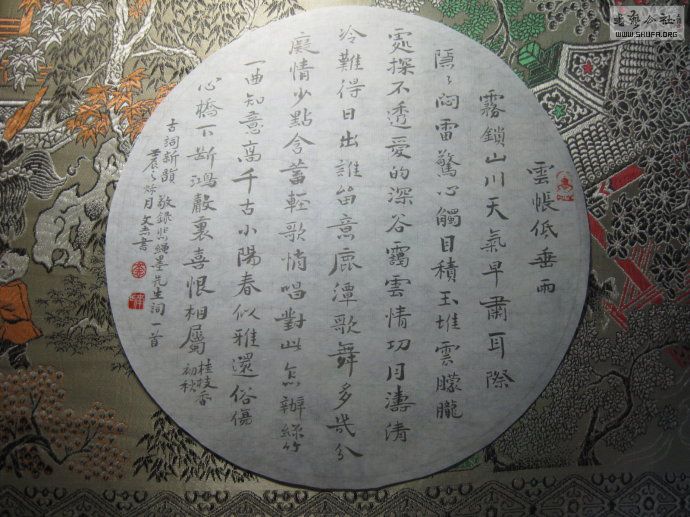 雲帳低垂雨
霧鎖山川天氣早肅耳際
隱々悶雷驚心觸目積玉堆雲朦朧
處探不透愛的深谷靄雲情切月濤清
冷難得日出誰留意鹿潭歌舞多幾分
癡情少點含蓄輕歌悄唱對此怎辦絲竹
一曲知意高千古小陽春似雅還俗傷
心橋下斷鴻聲裏喜恨相屬桂枝香
初秋
古詞新韻 敬錄悲繩墨先生詞一首
月文書
WWW.SHUFA.ORG